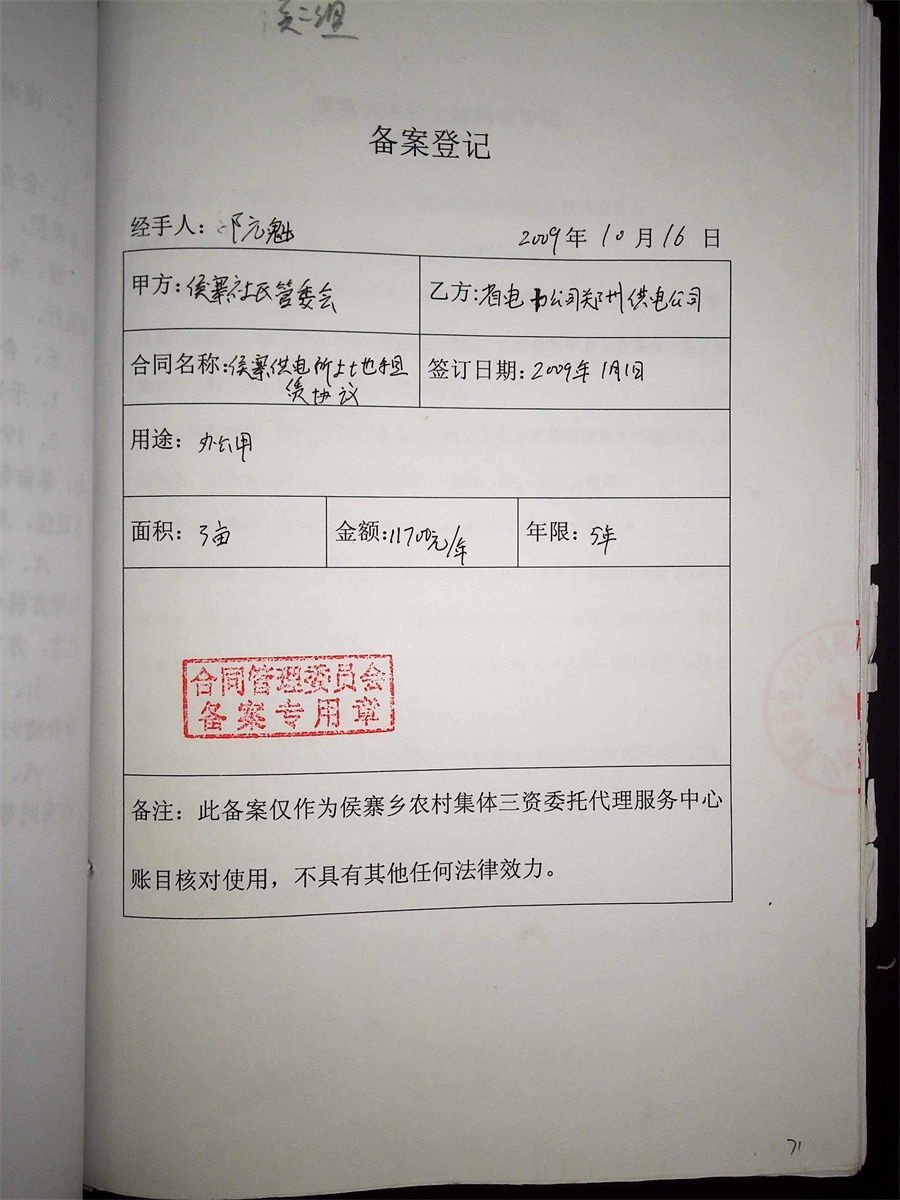 侯二组
备案登记
经手人：邓元魁
2009年 10 月 16 日
甲方：侯寨社民管委会
乙方：省电力公司郑州供电公司
合同名称：侯寨供电所土地租
赁协议
签订日期：2009年1月1日
用途：办公用
面积：3亩
金额：11700元/年
年限：5年
合同管理委员会
备案专用章
备注：此备案仅作为侯寨乡农村集体三资委托代理服务中心
账目核对使用，不具有其他任何法律效力。
71